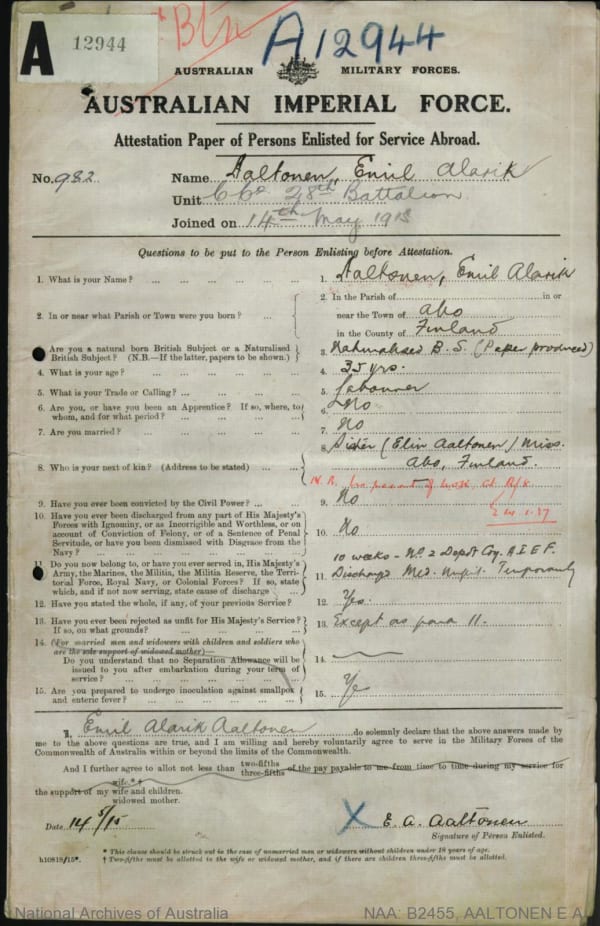 A
12944
Btn
A12944
AUSTRALIAN MILITARY FORCES.
AUSTRALIAN IMPERIAL FORCE.
Attestation Paper of Persons Enlisted for Service Abroad.
No. 982 Name Aaltonen, Emil Alarik
Unit C Co. 28th Battalion
Joined on 14th May 1915
Questions to be put to the Person Enlisting before Attestation.
1. What is your Name? ... ... ... ... 1. Aaltonen, Emil Alarik
2. In or near what Parish or Town were you born? ... ... 2. In the Parish of in or
near the Town of Abo
in the County of Finland
3. Are you a natural born British Subject or a Naturalised
British Subject? (N.B.—If the latter, papers to be shown.) 3. Naturalised B. S. (Paper produced)
4. What is your age? ... ... ... ... 4. 35 yrs.
5. What is your Trade or Calling? ... ... ... ... 5. Labourer
6. Are you, or have you been an Apprentice? If so, where, to
whom, and for what period? ... ... ... 6. No
7. Are you married? ... ... ... ... 7. No
8. Who is your next of kin? (Address to be stated) ... ... 8. Sister (Elin Aaltonen) Miss.
Abo, Finland.
9. Have you ever been convicted by the Civil Power? ... ... 9. No
10. Have you ever been discharged from any part of His Majesty's
Forces with Ignominy, or as Incorrigible and Worthless, or on
account of Conviction of Felony, or of a Sentence of Penal
Servitude, or have you been dismissed with Disgrace from the
Navy? ... ... ... ... 10. No
11. Do you now belong to, or have you ever served in, His Majesty's
Army, the Marines, the Militia, the Militia Reserve, the Terri-
torial Force, Royal Navy, or Colonial Forces? If so, state
which, and if not now serving, state cause of discharge ... 11. 10 weeks - No. 2 Depot Coy. A.I.E.F.
Discharged Med. Unfit. Temporarily
12. Have you stated the whole, if any, of your previous Service? 12. Yes.
13. Have you ever been rejected as unfit for His Majesty's Service?
If so, on what grounds? ... ... ... 13. Except as para 11.
14. (For married men and widowers with children and soldiers who
are the sole support of widowed mother)—
Do you understand that no Separation Allowance will be
issued to you after embarkation during your term of
service? ... ... ... ... 14.
15. Are you prepared to undergo inoculation against smallpox
and enteric fever? ... ... ... ... 15. Ye
I, Emil Alarik Aaltonen do solemnly declare that the above answers made by
me to the above questions are true, and I am willing and hereby voluntarily agree to serve in the Military Forces of the
Commonwealth of Australia within or beyond the limits of the Commonwealth.
And I further agree to allot not less than two-fifths three-fifths of the pay payable to me from time to time during my service for
the support of my wife * † wife and children. widowed mother.
Date 14/5/15 X E. A. Aaltonen
Signature of Person Enlisted.
h10818/15*.
* This clause should be struck out in the case of unmarried men or widowers without children under 18 years of age.
† Two-fifths must be allotted to the wife or widowed mother, and if there are children three-fifths must be allotted.
National Archives of Australia NAA: B2455, AALTONEN E A